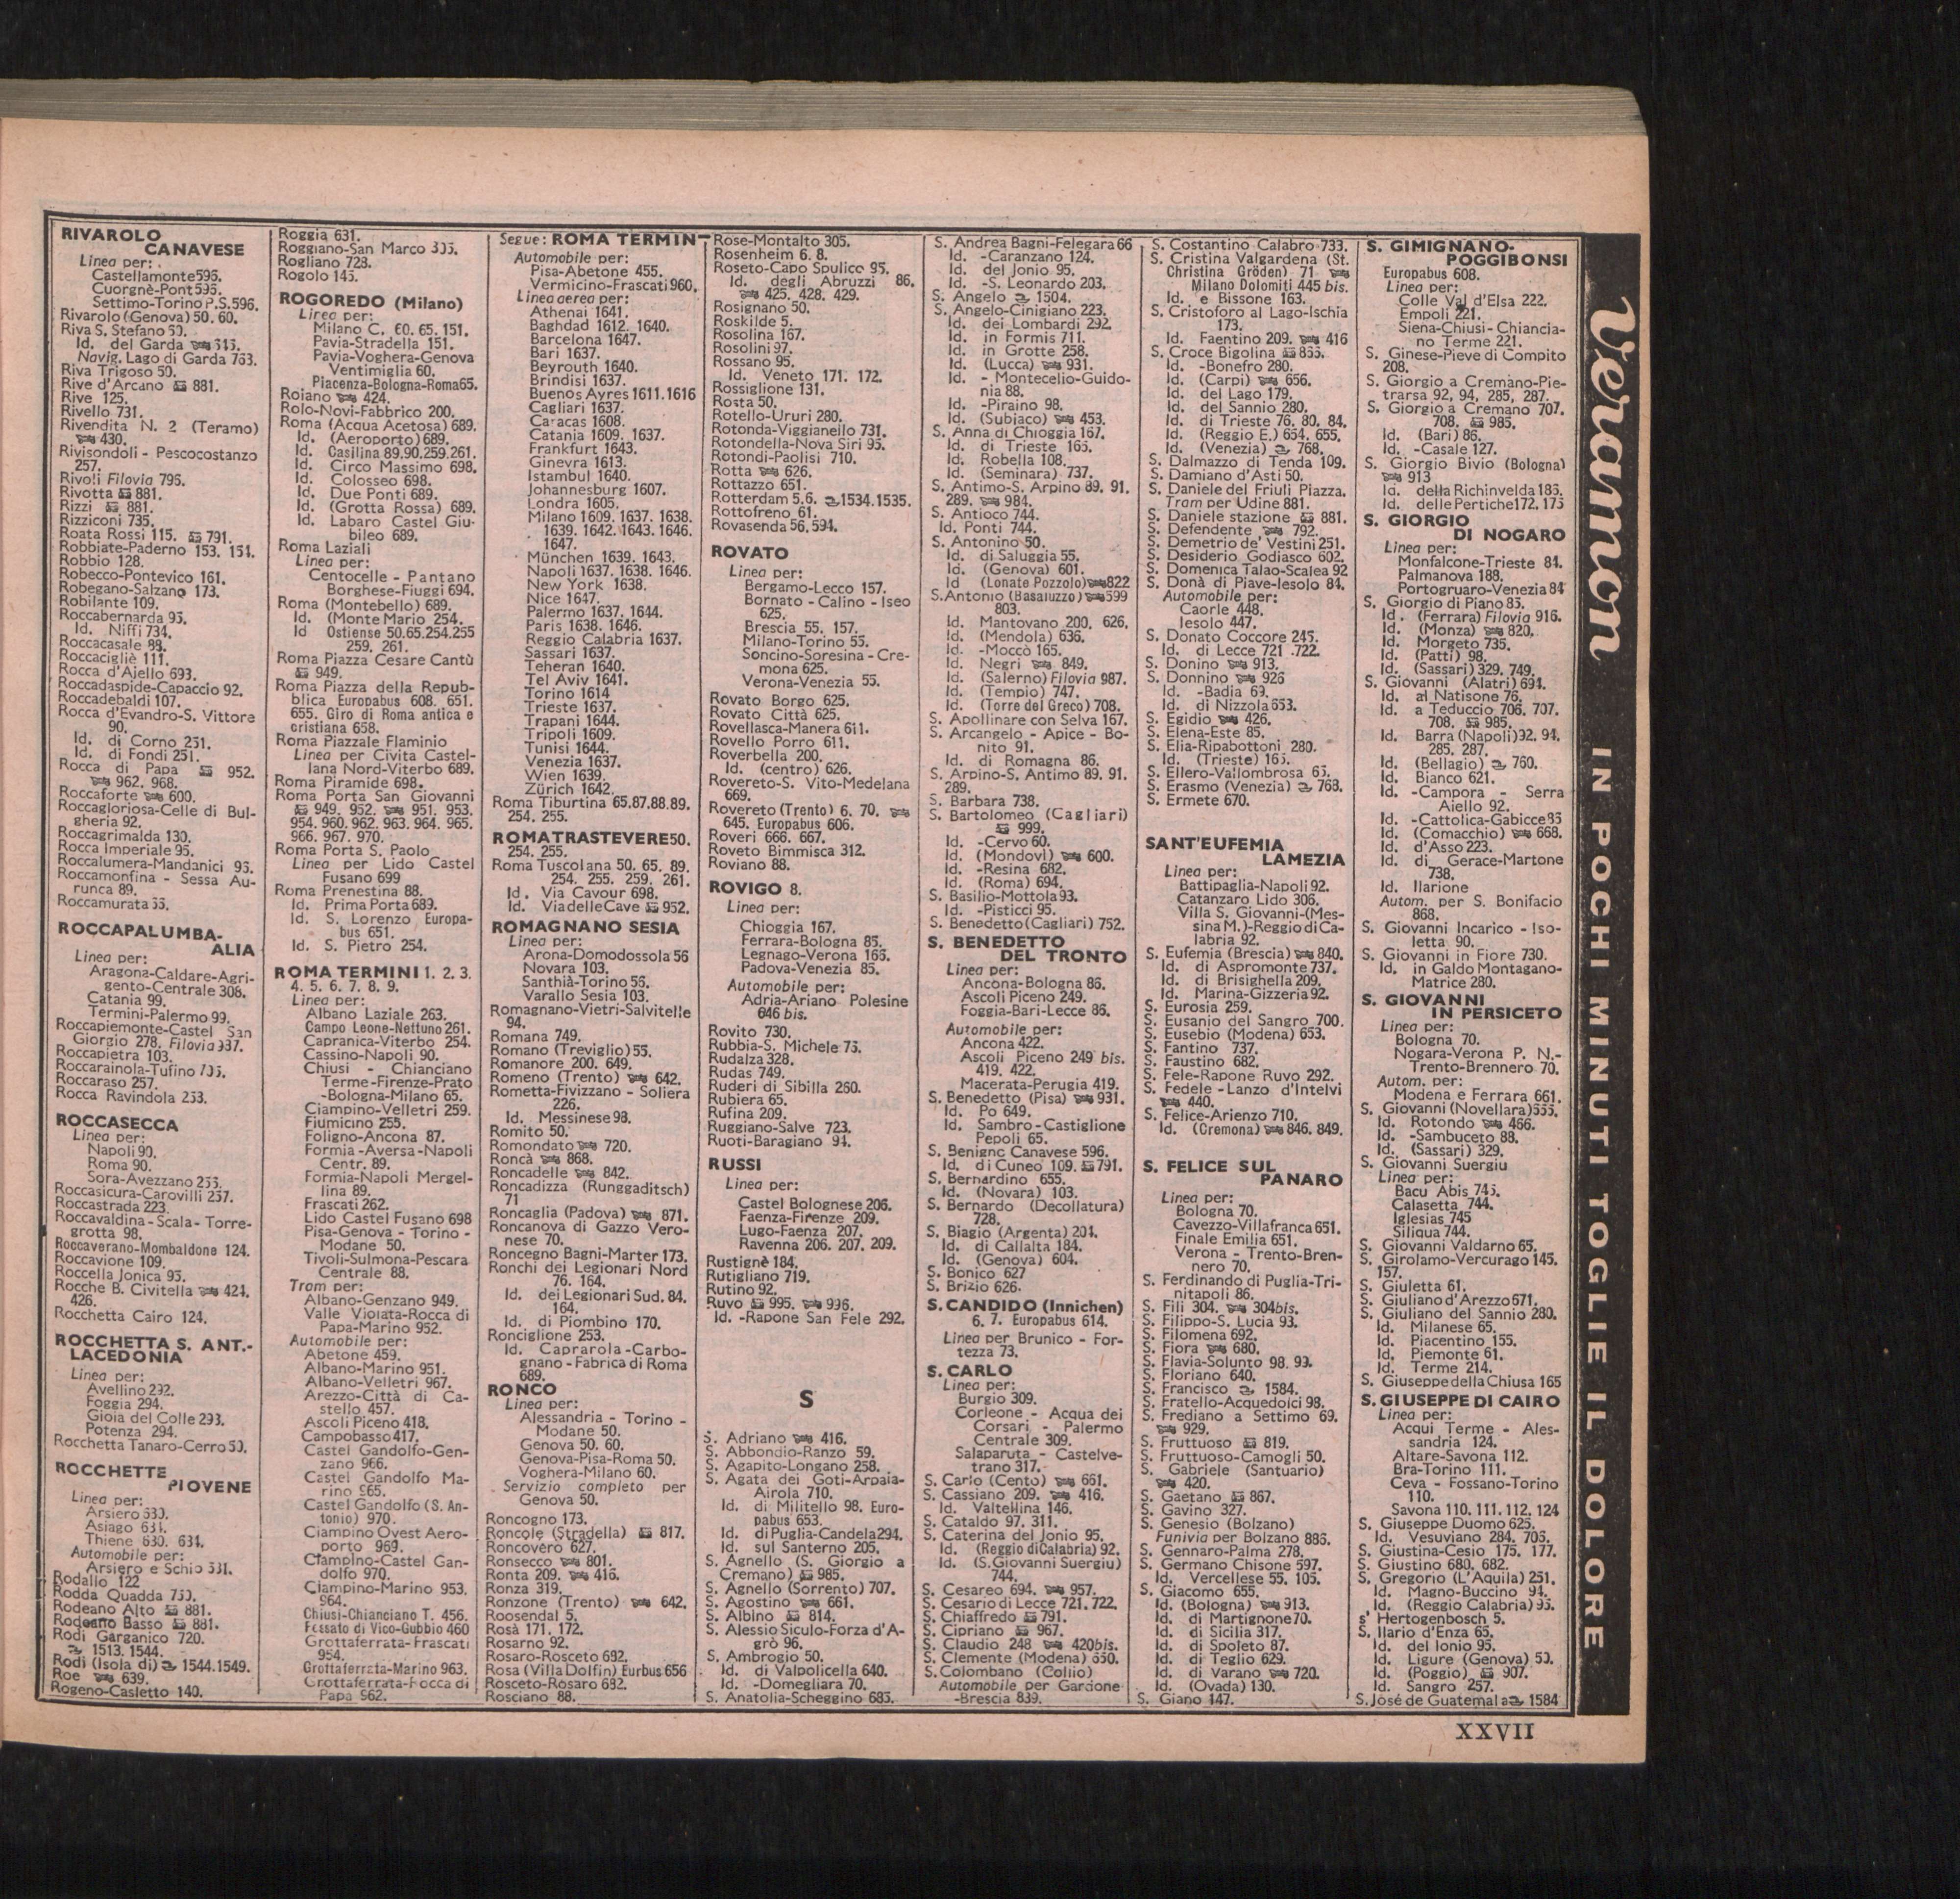 RIVAROLO
CANAVESE
Linea per:
Castellamonte 596.
Cuorgnè-Pont 596.
Settimo-Torino P.S. 596.
Rivarolo (Genova) 50. 60.
Riva S. Stefano 50.
Id. del Garda 646.
Navig. Lago di Garda 763.
Riva Trigoso 50.
Rive d'Arcano 881.
Rive 125.
Rivello 731.
Rivendita N. 2 (Teramo)
430.
Rivisondoli - Pescocostanzo
257.
Rivoli Filovia 796.
Rivotta 881.
Rizzi 881.
Rizziconi 735.
Roata Rossi 115. 791.
Robbiate-Paderno 153. 154.
Robbio 128.
Robecco-Pontevico 161.
Robegano-Salzano 173.
Robilante 109.
Roccabernarda 95.
Id. Niffi 734.
Roccacasale 88.
Roccacigliè 111.
Rocca d'Ajello 693.
Roccadaspide-Capaccio 92.
Roccadebaldi 107.
Rocca d'Evandro-S. Vittore
90.
Id. di Corno 251.
Id. di Fondi 251.
Rocca di Papa 952.
962. 968.
Roccaforte 600.
Roccagloriosa-Celle di Bul-
gheria 92.
Roccagrimalda 130.
Rocca Imperiale 95.
Roccalumera-Mandanici 96.
Roccamonfina - Sessa Au-
runca 89.
Roccamurata 66.
ROCCAPALUMBA-
ALIA
Linea per:
Aragona-Caldare-Agri-
gento-Centrale 308.
Catania 99.
Termini-Palermo 99.
Roccapiemonte-Castel San
Giorgio 278. Filovia 987.
Roccapietra 103.
Roccarainola-Tufino 706.
Roccaraso 257.
Rocca Ravindola 253.
ROCCASECCA
Linea per:
Napoli 90.
Roma 90.
Sora-Avezzano 255.
Roccasicura-Carovilli 257.
Roccastrada 223.
Roccavaldina - Scala - Torre-
grotta 98.
Roccaverano-Mombaldone 124.
Roccavione 109.
Roccella Jonica 95.
Rocche B. Civitella 424.
426.
Rocchetta Cairo 124.
ROCCHETTA S. ANT.-
LACEDONIA
Linea per:
Avellino 292.
Foggia 294.
Gioia del Colle 293.
Potenza 294.
Rocchetta Tanaro-Cerro 50.
ROCCHETTE
PIOVENE
Linea per:
Arsiero 630.
Asiago 634.
Thiene 630. 634.
Automobile per:
Arsiero e Schio 631.
Rodallo 122
Rodda Quadda 750.
Rodeano Alto 881.
Rodeano Basso 881.
Rodi Garganico 720.
1513. 1544.
Rodi (Isola di) 1544. 1549.
Roe 639.
Rogeno-Casletto 140.
Roggia 631.
Roggiano-San Marco 305.
Rogliano 728.
Rogolo 145.
ROGOREDO (Milano)
Linea per:
Milano C. 60. 65. 151.
Pavia-Stradella 151.
Pavia-Voghera-Genova
Ventimiglia 60.
Piacenza-Bologna-Roma 65.
Roiano 424.
Rolo-Novi-Fabbrico 200.
Roma (Acqua Acetosa) 689.
Id. (Aeroporto) 689.
Id. Casilina 89. 90. 259. 261.
Id. Circo Massimo 698.
Id. Colosseo 698.
Id. Due Ponti 689.
Id. (Grotta Rossa) 689.
Id. Labaro Castel Giu-
bileo 689.
Roma Laziali
Linea per:
Centocelle - Pantano
Borghese-Fiuggi 694.
Roma (Montebello) 689.
Id. (Monte Mario 254.
Id Ostiense 50. 65. 254. 255
259. 261.
Roma Piazza Cesare Cantù
949.
Roma Piazza della Repub-
blica Europabus 608. 651.
655. Giro di Roma antica e
cristiana 658.
Roma Piazzale Flaminio
Linea per Civita Castel-
lana Nord-Viterbo 689.
Roma Piramide 698.
Roma Porta San Giovanni
949. 952. 951. 953.
954. 960. 962. 963. 964. 965.
966. 967. 970.
Roma Porta S. Paolo
Linea per Lido Castel
Fusano 699
Roma Prenestina 88.
Id. Prima Porta 689.
Id. S. Lorenzo Europa-
bus 651.
Id. S. Pietro 254.
ROMA TERMINI 1. 2. 3.
4. 5. 6. 7. 8. 9.
Linea per:
Albano Laziale 263.
Campo Leone-Nettuno 261.
Capranica-Viterbo 254.
Cassino-Napoli 90.
Chiusi - Chianciano
Terme - Firenze-Prato
-Bologna-Milano 65.
Ciampino-Velletri 259.
Fiumicino 255.
Foligno-Ancona 87.
Formia - Aversa - Napoli
Centr. 89.
Formia-Napoli Mergel-
lina 89.
Frascati 262.
Lido Castel Fusano 698
Pisa-Genova - Torino -
Modane 50.
Tivoli-Sulmona-Pescara
Centrale 88.
Tram per:
Albano-Genzano 949.
Valle Violata-Rocca di
Papa-Marino 952.
Automobile per:
Abetone 459.
Albano-Marino 951.
Albano-Velletri 967.
Arezzo-Città di Ca-
stello 457.
Ascoli Piceno 418.
Campobasso 417.
Castel Gandolfo-Gen-
zano 966.
Castel Gandolfo Ma-
rino 965.
Castel Gandolfo (S. An-
tonio) 970.
Ciampino Ovest Aero-
porto 969.
Ciampino-Castel Gan-
dolfo 970.
Ciampino-Marino 953.
964.
Chiusi-Chianciano T. 456.
Fossato di Vico-Gubbio 460
Grottaferrata-Frascati
954.
Grottaferrata-Marino 963.
Grottaferrata-Rocca di
Papa 962.
Segue: ROMA TERMIN
Automobile per:
Pisa-Abetone 455.
Vermicino-Frascati 960.
Linea aerea per:
Athenai 1641.
Baghdad 1612. 1640.
Barcelona 1647.
Bari 1637.
Beyrouth 1640.
Brindisi 1637.
Buenos Ayres 1611. 1616
Cagliari 1637.
Caracas 1608.
Catania 1609. 1637.
Frankfurt 1643.
Ginevra 1613.
Istambul 1640.
Johannesburg 1607.
Londra 1605.
Milano 1609. 1637. 1638.
1639. 1642. 1643. 1646.
1647.
München 1639. 1643.
Napoli 1637. 1638. 1646.
New York 1638.
Nice 1647.
Palermo 1637. 1644.
Paris 1638. 1646.
Reggio Calabria 1637.
Sassari 1637.
Teheran 1640.
Tel Aviv 1641.
Torino 1614
Trieste 1637.
Trapani 1644.
Tripoli 1609.
Tunisi 1644.
Venezia 1637.
Wien 1639.
Zürich 1642.
Roma Tiburtina 65. 87. 88. 89.
254. 255.
ROMA TRASTEVERE 50.
254. 255.
Roma Tuscolana 50. 65. 89.
254. 255. 259. 261.
Id. Via Cavour 698.
Id. Via delle Cave 952.
ROMAGNANO SESIA
Linea per:
Arona-Domodossola 56
Novara 103.
Santhià-Torino 56.
Varallo Sesia 103.
Romagnano-Vietri-Salvitelle
94.
Romana 749.
Romano (Treviglio) 55.
Romanore 200. 649.
Romeno (Trento) 642.
Rometta-Fivizzano - Soliera
226.
Id. Messinese 98.
Romito 50.
Romondato 720.
Roncà 868.
Roncadelle 842.
Roncadizza (Runggaditsch)
71
Roncaglia (Padova) 871.
Roncanova di Gazzo Vero-
nese 70.
Roncegno Bagni-Marter 173.
Ronchi dei Legionari Nord
76. 164.
Id. dei Legionari Sud. 84.
164.
Id. di Piombino 170.
Ronciglione 253.
Id. Caprarola - Carbo-
gnano - Fabrica di Roma
689.
RONCO
Linea per:
Alessandria - Torino -
Modane 50.
Genova 50. 60.
Genova-Pisa-Roma 50.
Voghera-Milano 60.
Servizio completo per
Genova 50.
Roncogno 173.
Roncole (Stradella) 817.
Roncovero 627.
Ronsecco 801.
Ronta 209. 416.
Ronza 319.
Ronzone (Trento) 642.
Roosendal 5.
Rosà 171. 172.
Rosarno 92.
Rosaro-Rosceto 682.
Rosa (Villa Dolfin) Eurbus 656
Rosceto-Rosaro 682.
Rosciano 88.
Rose-Montalto 305.
Rosenheim 6. 8.
Roseto-Capo Spulico 95.
Id. degli Abruzzi 86.
425. 428. 429.
Rosignano 50.
Roskilde 5.
Rosolina 167.
Rosolini 97.
Rossano 95.
Id. Veneto 171. 172.
Rossiglione 131.
Rosta 50.
Rotello-Ururi 280.
Rotonda-Viggianello 731.
Rotondella-Nova Siri 95.
Rotondi-Paolisi 710.
Rotta 626.
Rottazzo 651.
Rotterdam 5. 6. 1534. 1535.
Rottofreno 61.
Rovasenda 56. 594.
ROVATO
Linea per:
Bergamo-Lecco 157.
Bornato - Calino - Iseo
625.
Brescia 55. 157.
Milano-Torino 55.
Soncino-Soresina - Cre-
mona 625.
Verona-Venezia 55.
Rovato Borgo 625.
Rovato Città 625.
Rovellasca-Manera 611.
Rovello Porro 611.
Roverbella 200.
Id. (centro) 626.
Rovereto-S. Vito-Medelana
669.
Rovereto (Trento) 6. 70.
645. Europabus 606.
Roveri 666. 667.
Roveto Bimmisca 312.
Roviano 88.
ROVIGO 8.
Linea per:
Chioggia 167.
Ferrara-Bologna 85.
Legnago-Verona 166.
Padova-Venezia 85.
Automobile per:
Adria-Ariano Polesine
646 bis.
Rovito 730.
Rubbia-S. Michele 76.
Rudalza 328.
Rudas 749.
Ruderi di Sibilla 260.
Rubiera 65.
Rufina 209.
Ruggiano-Salve 723.
Ruoti-Baragiano 94.
RUSSI
Linea per:
Castel Bolognese 206.
Faenza-Firenze 209.
Lugo-Faenza 207.
Ravenna 206. 207. 209.
Rustignè 184.
Rutigliano 719.
Rutino 92.
Ruvo 995. 996.
Id. -Rapone San Fele 292.
S
S. Adriano 416.
S. Abbondio-Ranzo 59.
S. Agapito-Longano 258.
S. Agata dei Goti-Arpaia-
Airola 710.
Id. di Militello 98. Euro-
pabus 653.
Id. di Puglia-Candela 294.
Id. sul Santerno 205.
S. Agnello (S. Giorgio a
Cremano) 985.
S. Agnello (Sorrento) 707.
S. Agostino 661.
S. Albino 814.
S. Alessio Siculo-Forza d'A-
grò 96.
S. Ambrogio 50.
Id. di Valpolicella 640.
Id. -Domegliara 70.
S. Anatolia-Scheggino 685.
S. Andrea Bagni-Felegara 66
Id. -Caranzano 124.
Id. del Jonio 95.
Id. -S. Leonardo 203.
S. Angelo 1504.
S. Angelo-Cinigiano 223.
Id. dei Lombardi 292.
Id. in Formis 711.
Id. in Grotte 258.
Id. (Lucca) 931.
Id. - Montecelio-Guido-
nia 88.
Id. -Piraino 98.
Id. (Subiaco) 453.
S. Anna di Chioggia 167.
Id. di Trieste 165.
Id. Robella 108.
Id. (Seminara) 737.
S. Antimo-S. Arpino 89. 91.
289. 984.
S. Antioco 744.
Id. Ponti 744.
S. Antonino 50.
Id. di Saluggia 55.
Id. (Genova) 601.
Id (Lonate Pozzolo) 822
S. Antonio (Basaluzzo) 599
803.
Id. Mantovano 200. 626.
Id. (Mendola) 636.
Id. -Moccò 165.
Id. Negri 849.
Id. (Salerno) Filovia 987.
Id. (Tempio) 747.
Id. (Torre del Greco) 708.
S. Apollinare con Selva 167.
S. Arcangelo - Apice - Bo-
nito 91.
Id. di Romagna 86.
S. Arpino-S. Antimo 89. 91.
289.
S. Barbara 738.
S. Bartolomeo (Cagliari)
999.
Id. -Cervo 60.
Id. (Mondovì) 600.
Id. -Resina 682.
Id. (Roma) 694.
S. Basilio-Mottola 93.
Id. -Pisticci 95.
S. Benedetto (Cagliari) 752.
S. BENEDETTO
DEL TRONTO
Linea per:
Ancona-Bologna 86.
Ascoli Piceno 249.
Foggia-Bari-Lecce 86.
Automobile per:
Ancona 422.
Ascoli Piceno 249 bis.
419. 422.
Macerata-Perugia 419.
S. Benedetto (Pisa) 931.
Id. Po 649.
Id. Sambro - Castiglione
Pepoli 65.
S. Benigno Canavese 596.
Id. di Cuneo 109. 791.
S. Bernardino 655.
Id. (Novara) 103.
S. Bernardo (Decollatura)
728.
S. Biagio (Argenta) 204.
Id. di Callalta 184.
Id. (Genova) 604.
S. Bonico 627
S. Brizio 626.
S. CANDIDO (Innichen)
6. 7. Europabus 614.
Linea per Brunico - For-
tezza 73.
S. CARLO
Linea per:
Burgio 309.
Corleone - Acqua dei
Corsari - Palermo
Centrale 309.
Salaparuta - Castelve-
trano 317.
S. Carlo (Cento) 661.
S. Cassiano 209. 416.
Id. Valtellina 146.
S. Cataldo 97. 311.
S. Caterina del Jonio 95.
Id. (Reggio di Calabria) 92.
Id. (S. Giovanni Suergiu)
744.
S. Cesareo 694. 957.
S. Cesario di Lecce 721. 722.
S. Chiaffredo 791.
S. Cipriano 967.
S. Claudio 248 420bis.
S. Clemente (Modena) 650.
S. Colombano (Collio)
Automobile per Garcione
-Brescia 839.
S. Costantino Calabro 733.
S. Cristina Valgardena (St.
Christina Gröden) 71
Milano Dolomiti 445 bis.
Id. e Bissone 163.
S. Cristoforo al Lago-Ischia
173.
Id. Faentino 209. 416
S. Croce Bigolina 866.
Id. -Bonefro 280.
Id. (Carpi) 656.
Id. del Lago 179.
Id. del Sannio 280.
Id. di Trieste 76. 80. 84.
Id. (Reggio E.) 654. 655.
Id. (Venezia) 768.
S. Dalmazzo di Tenda 109.
S. Damiano d'Asti 50.
S. Daniele del Friuli Piazza.
Tram per Udine 881.
S. Daniele stazione 881.
S. Defendente 792.
S. Demetrio de' Vestini 251.
S. Desiderio Godiasco 602.
S. Domenica Talao-Scalea 92
S. Donà di Piave-Iesolo 84.
Automobile per:
Caorle 448.
Iesolo 447.
S. Donato Coccore 245.
Id. di Lecce 721. 722.
S. Donino 913.
S. Donnino 926
Id. -Badia 69.
Id. di Nizzola 653.
S. Egidio 426.
S. Elena-Este 85.
S. Elia-Ripabottoni 280.
Id. (Trieste) 165.
S. Ellero-Vallombrosa 65.
S. Erasmo (Venezia) 768.
S. Ermete 670.
SANT'EUFEMIA
LAMEZIA
Linea per:
Battipaglia-Napoli 92.
Catanzaro Lido 306.
Villa S. Giovanni-(Mes-
sina M.)-Reggio di Ca-
labria 92.
S. Eufemia (Brescia) 840.
Id. di Aspromonte 737.
Id. di Brisighella 209.
Id. Marina-Gizzeria 92.
S. Eurosia 259.
S. Eusanio del Sangro 700.
S. Eusebio (Modena) 653.
S. Fantino 737.
S. Faustino 682.
S. Fele-Rapone Ruvo 292.
S. Fedele - Lanzo d'Intelvi
440.
S. Felice-Arienzo 710.
Id. (Cremona) 846. 849.
S. FELICE SUL
PANARO
Linea per:
Bologna 70.
Cavezzo-Villafranca 651.
Finale Emilia 651.
Verona - Trento-Bren-
nero 70.
S. Ferdinando di Puglia-Tri-
nitapoli 86.
S. Fili 304. 304bis.
S. Filippo-S. Lucia 93.
S. Filomena 692.
S. Fiora 680.
S. Flavia-Solunto 98. 99.
S. Floriano 640.
S. Francisco 1584.
S. Fratello-Acquedolci 98.
S. Frediano a Settimo 69.
929.
S. Fruttuoso 819.
S. Fruttuoso-Camogli 50.
S. Gabriele (Santuario)
420.
S. Gaetano 867.
S. Gavino 327.
S. Genesio (Bolzano)
Funivia per Bolzano 886.
S. Gennaro-Palma 278.
S. Germano Chisone 597.
Id. Vercellese 55. 105.
S. Giacomo 655.
Id. (Bologna) 913.
Id. di Martignone 70.
Id. di Sicilia 317.
Id. di Spoleto 87.
Id. di Teglio 629.
Id. di Varano 720.
Id. (Ovada) 130.
S. Giano 147.
S. GIMIGNANO-
POGGIBONSI
Europabus 608.
Linea per:
Colle Val d'Elsa 222.
Empoli 221.
Siena-Chiusi - Chiancia-
no Terme 221.
S. Ginese-Pieve di Compito
208.
S. Giorgio a Cremano-Pie-
trarsa 92. 94. 285. 287.
S. Giorgio a Cremano 707.
708. 985.
Id. (Bari) 86.
Id. -Casale 127.
S. Giorgio Bivio (Bologna)
913
Id. della Richinvelda 186.
Id. delle Pertiche 172. 175
S. GIORGIO
DI NOGARO
Linea per:
Monfalcone-Trieste 84.
Palmanova 188.
Portogruaro-Venezia 84
S. Giorgio di Piano 85.
Id. (Ferrara) Filovia 916.
Id. (Monza) 820.
Id. Morgeto 735.
Id. (Patti) 98.
Id. (Sassari) 329. 749.
S. Giovanni (Alatri) 694.
Id. al Natisone 76.
Id. a Teduccio 706. 707.
708. 985.
Id. Barra (Napoli) 92. 94.
285. 287.
Id. (Bellagio) 760.
Id. Bianco 621.
Id. -Campora - Serra
Aiello 92.
Id. -Cattolica-Gabicce 86
Id. (Comacchio) 668.
Id. d'Asso 223.
Id. di Gerace-Martone
738.
Id. Ilarione
Autom. per S. Bonifacio
868.
S. Giovanni Incarico - Iso-
letta 90.
S. Giovanni in Fiore 730.
Id. in Galdo Montagano-
Matrice 280.
S. GIOVANNI
IN PERSICETO
Linea per:
Bologna 70.
Nogara-Verona P. N.-
Trento-Brennero 70.
Autom. per:
Modena e Ferrara 661.
S. Giovanni (Novellara) 655.
Id. Rotondo 466.
Id. -Sambuceto 88.
Id. (Sassari) 329.
S. Giovanni Suergiu
Linea per:
Bacu Abis 745.
Calasetta 744.
Iglesias 745
Siliqua 744.
S. Giovanni Valdarno 65.
S. Girolamo-Vercurago 145.
157.
S. Giuletta 61.
S. Giuliano d'Arezzo 671.
S. Giuliano del Sannio 280.
Id. Milanese 65.
Id. Piacentino 155.
Id. Piemonte 61.
Id. Terme 214.
S. Giuseppe della Chiusa 165
S. GIUSEPPE DI CAIRO
Linea per:
Acqui Terme - Ales-
sandria 124.
Altare-Savona 112.
Bra-Torino 111.
Ceva - Fossano-Torino
110.
Savona 110. 111. 112. 124
S. Giuseppe Duomo 625.
Id. Vesuviano 284. 706.
S. Giustina-Cesio 175. 177.
S. Giustino 680. 682.
S. Gregorio (L'Aquila) 251.
Id. Magno-Buccino 94.
Id. (Reggio Calabria) 95.
s' Hertogenbosch 5.
S. Ilario d'Enza 65.
Id. del Ionio 95.
Id. Ligure (Genova) 50.
Id. (Poggio) 907.
Id. Sangro 257.
S. José de Guatemala 1584
Veramon IN POCHI MINUTI TOGLIE IL DOLORE
XXVII